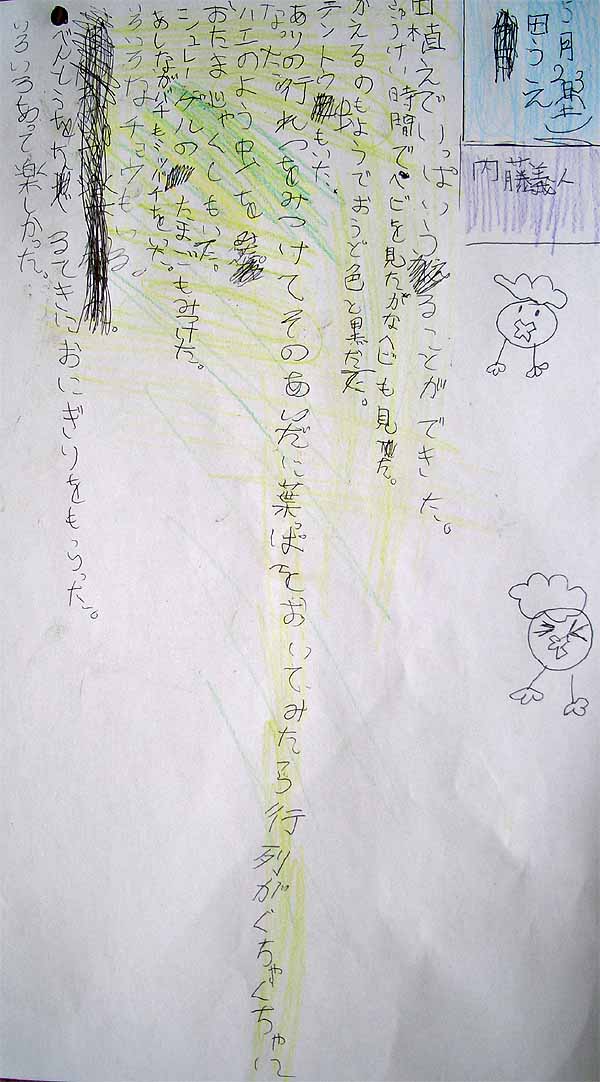 5月23(土)
田うえ
内藤義人
田植えでいっぱいうえることができた。
きゅうけい時間でヘビを見たがなヘビも見た。
かえるのもようでおうど色と黒だった。
テントウ虫もいた。
ありの行れつをみつけてそのあいだに葉っぱをおいてみたら行列がぐちゃぐちゃに
なった。
ハエのような虫を
おたまじゃくしもいた。
シュレーゲルのたまごもみつけた。
あしながバチもミツバチもいた。
いろいろなチョウもいる。
べんとうをたべるてきにおにぎりをもらった。
いろいろあって楽しかった。